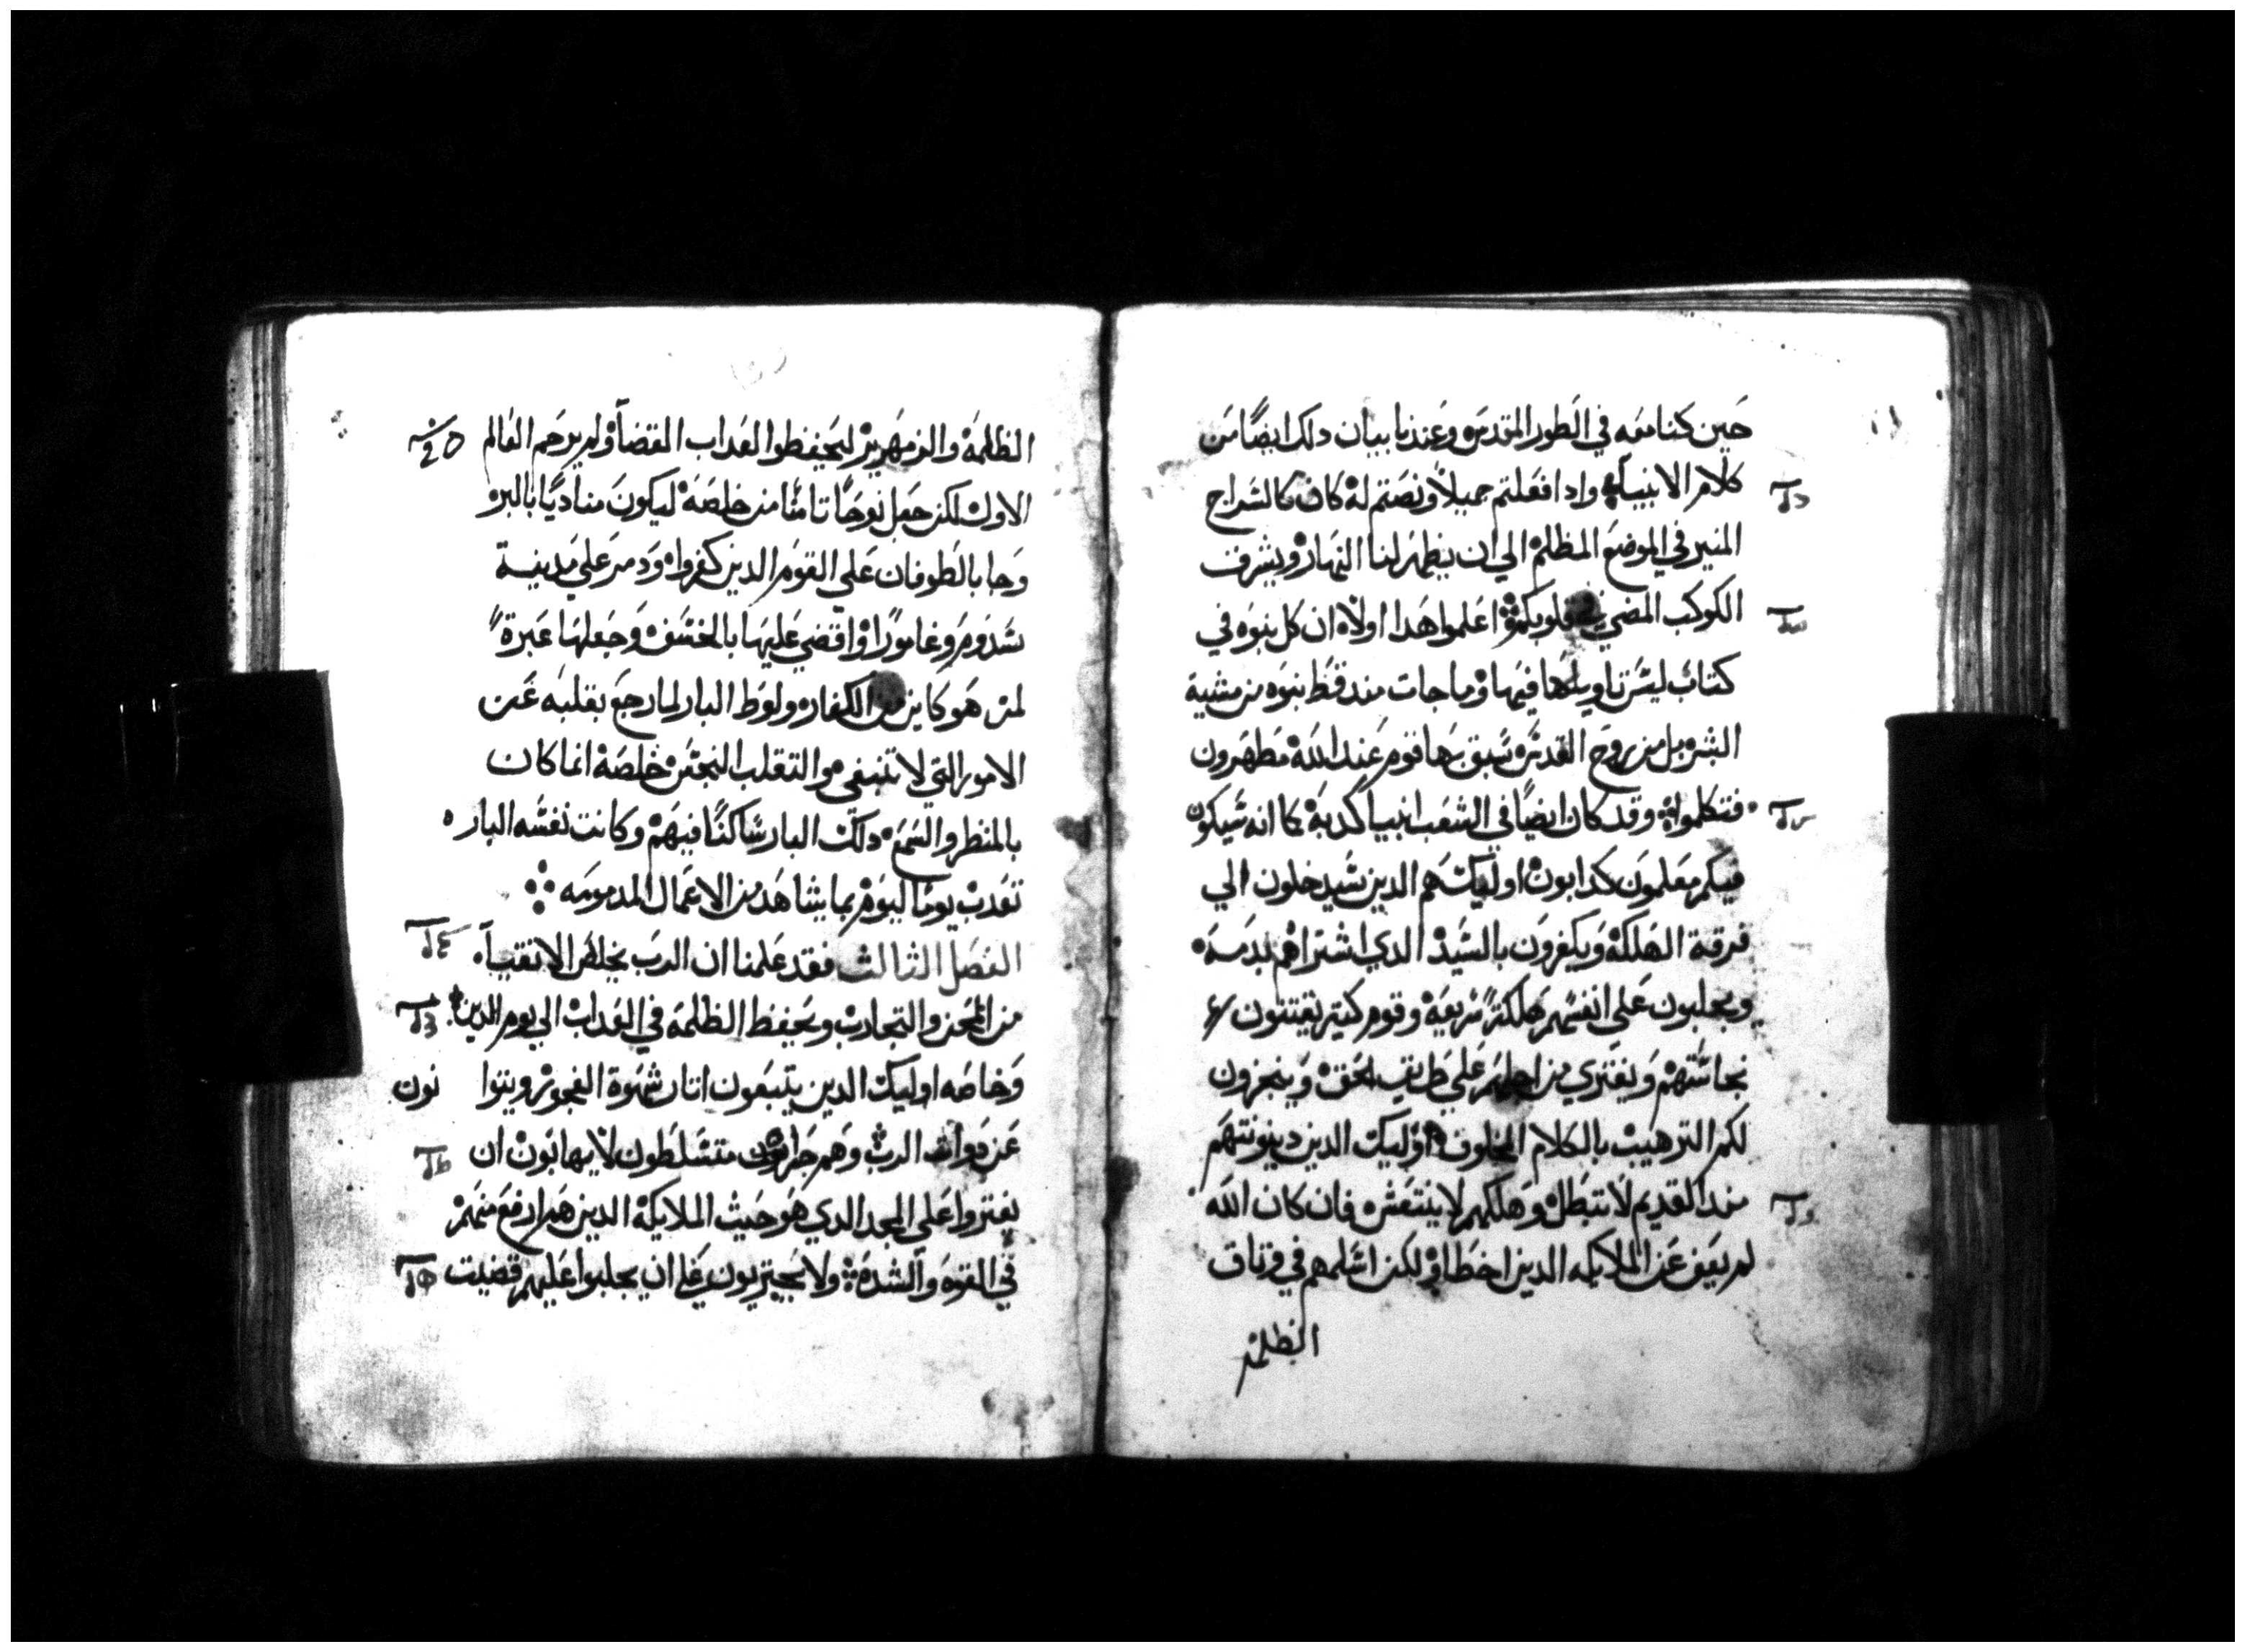 حين كنا معه في الطور المقدس وعندنا بيان دلك ايضًا من
كلام الانبيآ واداافعلتم جميلاً ونصتم له كان كالسراج
المنير في الموضع المظلم الي ان يظهر لنا النهار ويشرف
الكوكب المضي في قلوبكم اعلموا هدا اولاً ان كل نبوه في
كتاب ليس تاويلها فيها وما جات مند قط نبوه من مشية
البشر بل من روح القدس سبق بها قوم عند الله مطهرون
فتكلموا وقد كان ايضًا في الشعب انبيا كدبة كما انه سيكون
فيكم معلمون كدابون اوليك هم الدين سيدخلون الي
فرقة الهلكة ويكفرون بالسيد الدي اشتراهم بدمه
ويجلبون علي انفسهم هلكة سريعة وقوم كتير يفتنون
نجاستهم ويفتري من اجلهم علي طريق الحق ويتجرون
لكم الترهيب بالكلام المخلوق اوليك الدين دينونتهم
مند القديم لا تبطل وهلكهم لا ينتعش فان كان الله
لم يعف عن الملايكه الدين اخطاو لكن اسلمهم في وتاق
الظلمة
الظلمة والزمهرير ليحفظوا العداب القضآ ولم يرحم العالم
الاول لكن جعل نوحًا تامنًا من خلصه ليكون مناديًا بالبر
وجا بالطوفان علي القوم الدين كفروا ودمر علي مدينة
سدوم وغامورًا واقتضي عليها بالخسف وجعلها عبرةً
لمن هو كاين من الكفاره ولوط البار لما رجع بقلبه عن
الامور التي لا تنبغي والتقلب النجس خلصه انما كان
بالمنظر والسمع دلك البار ساكنًا فيهم وكانت نفسه الباره
تعدب يومًا ليوم بما يشاهد من الاعمال المدمومه
الفصل الثالث فقد علمنا ان الرب يخلص الاتقيآ
من المحن والتجارب ويحفظ الظلمة في العداب الي يوم الدين
وخاصه اوليك الدين يتبعون اتار شهوة الفجور ويتوا نون
عن الرب وهم متسلطون لا يهابون ان
يفتروا علي المجد الدي هو حيث الملايكة الدين هم ارفع منهم
في القوه والشده ولا يجتريون علي ان يجلبوا عليهم قضيت